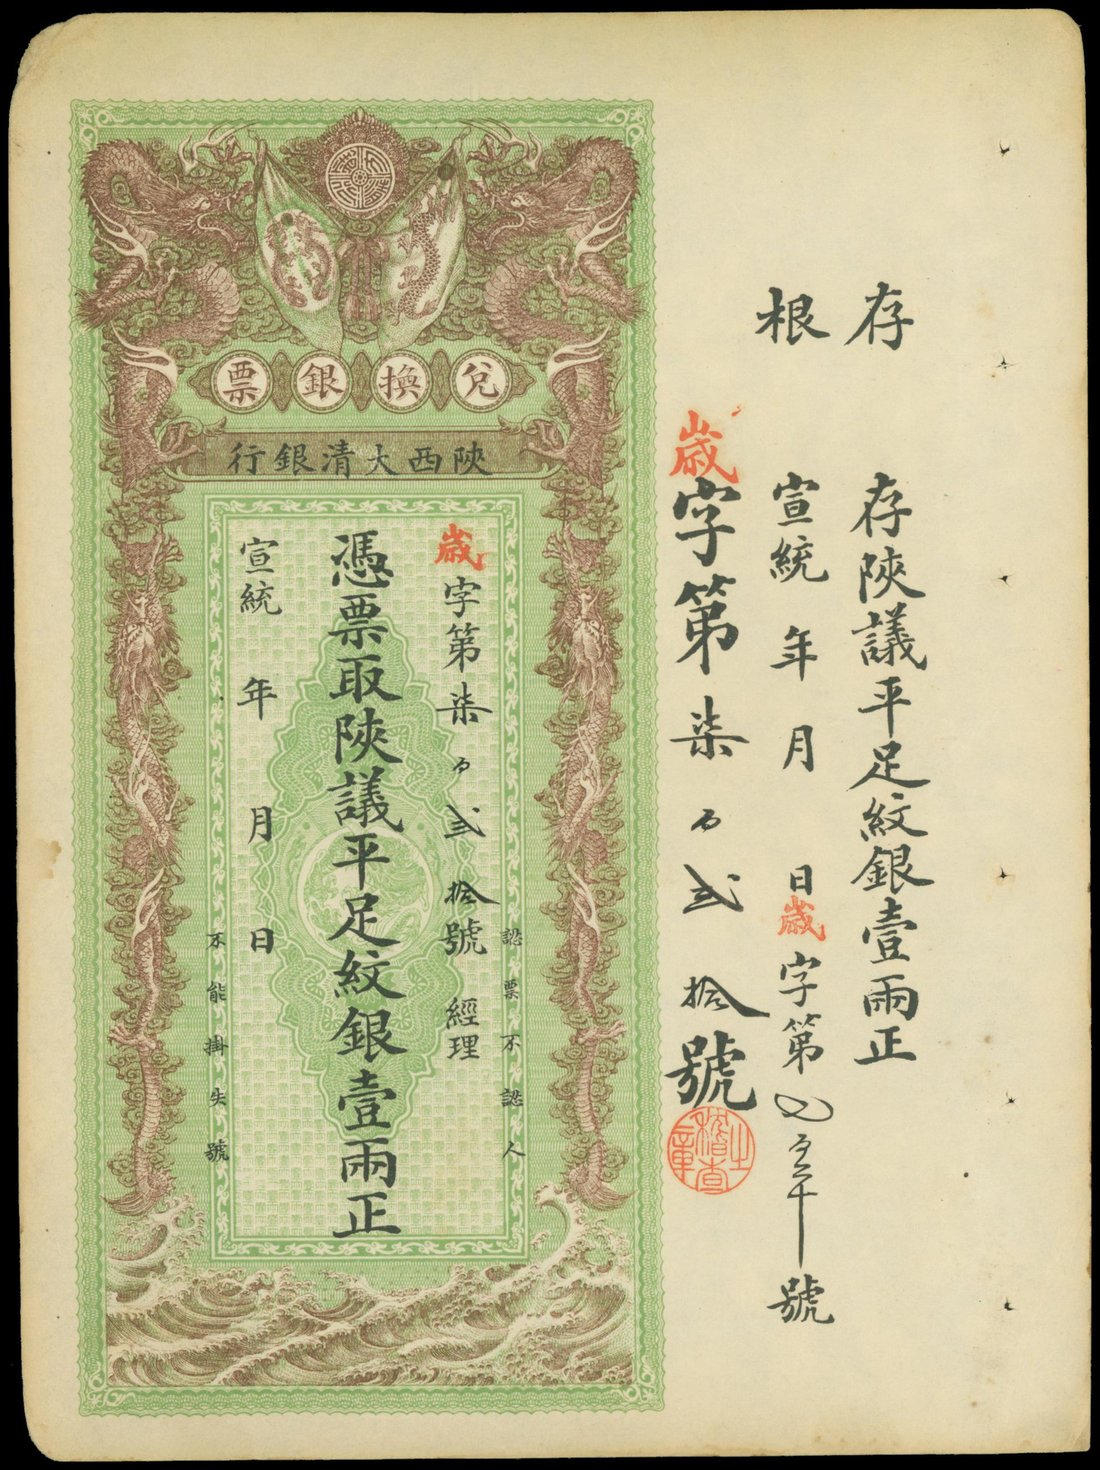 存根
存陝議平足紋銀壹兩正
宣統 年 月 日歲字第 號
歲字第柒百弍拾號
稽查之章
兌換銀票
陝西大清銀行
認票不認人
歲字第柒百弍拾號 經理
憑票取陝議平足紋銀壹兩正
宣統 年 月 日
不能掛失號